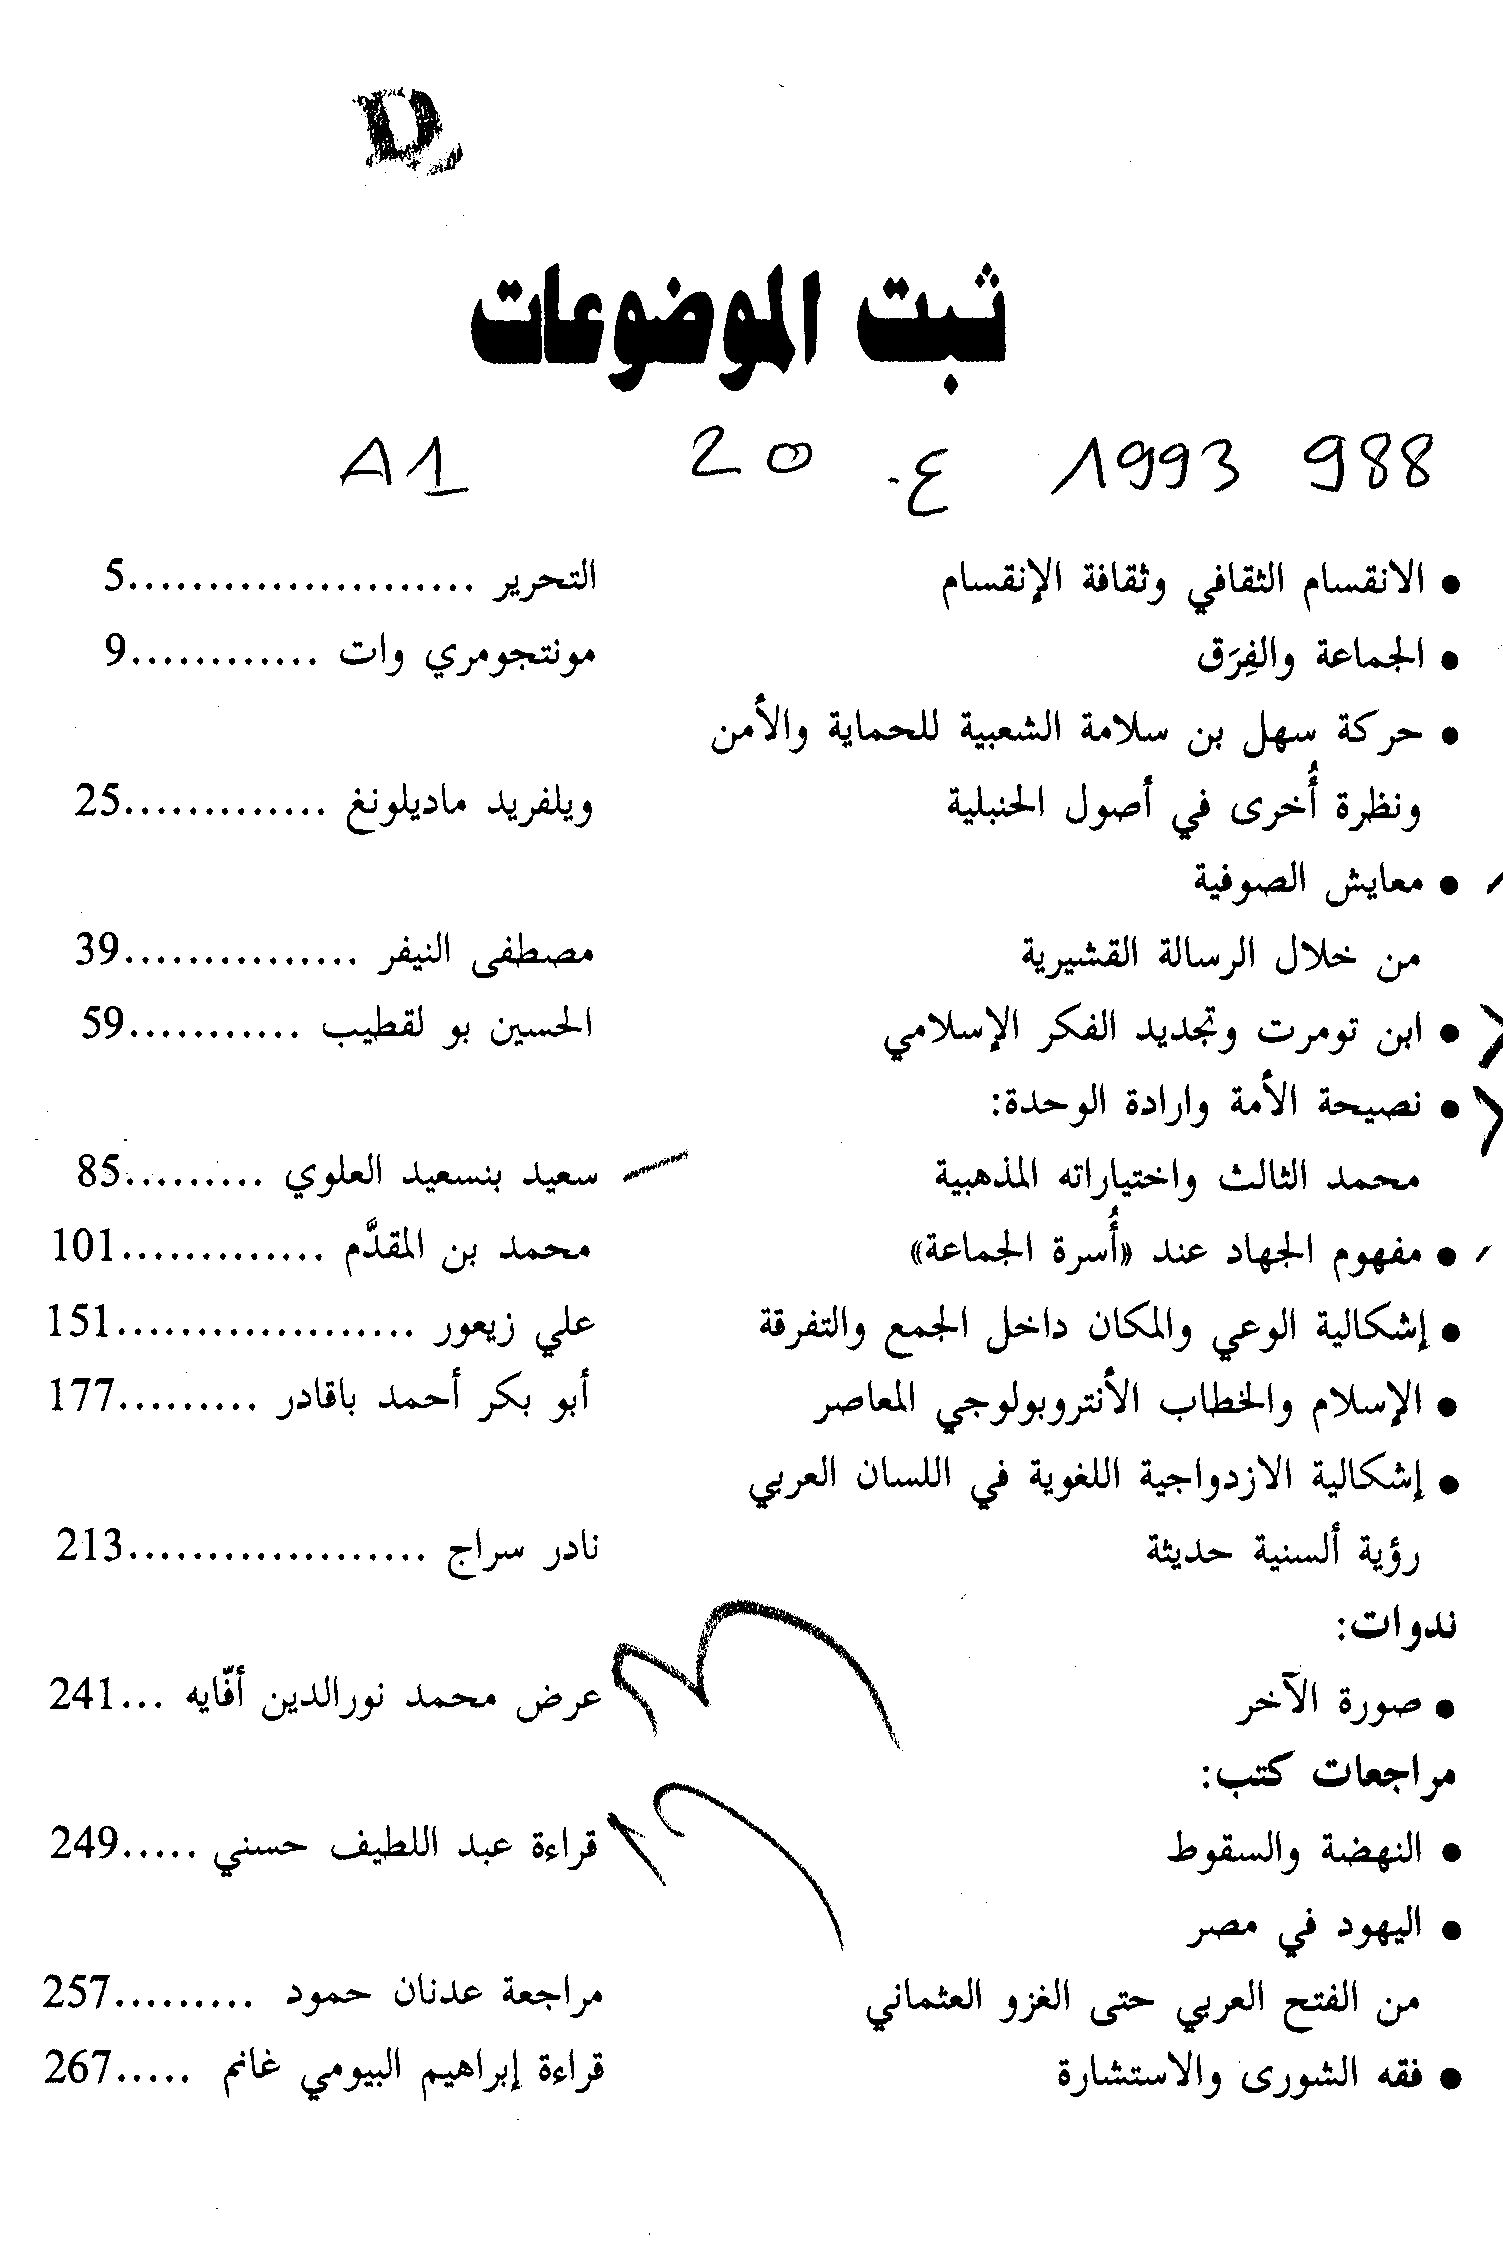 D
ثبت الموضوعات
988 1993 ع. 20 A1
• الانقسام الثقافي وثقافة الإنقسام التحرير ......................5
• الجماعة والفِرَق مونتجومري وات ............9
• حركة سهل بن سلامة الشعبية للحماية والأمن
ونظرة أُخرى في أصول الحنبلية ويلفريد ماديلونغ .............25
• معايش الصوفية
من خلال الرسالة القشيرية مصطفى النيفر ...............39
• ابن تومرت وتجديد الفكر الإسلامي الحسين بو لقطيب ...........59
• نصيحة الأمة وارادة الوحدة:
محمد الثالث واختياراته المذهبية سعيد بنسعيد العلوي .........85
• مفهوم الجهاد عند «أُسرة الجماعة» محمد بن المقدَّم .............101
• إشكالية الوعي والمكان داخل الجمع والتفرقة علي زيعور ...................151
• الإسلام والخطاب الأنتروبولوجي المعاصر أبو بكر أحمد باقادر .........177
• إشكالية الازدواجية اللغوية في اللسان العربي
رؤية ألسنية حديثة نادر سراج ...................213
ندوات:
• صورة الآخر عرض محمد نورالدين أفّايه ...241
مراجعات كتب:
• النهضة والسقوط قراءة عبد اللطيف حسني .....249
• اليهود في مصر
من الفتح العربي حتى الغزو العثماني مراجعة عدنان حمود .........257
• فقه الشورى والاستشارة قراءة إبراهيم البيومي غانم .....267